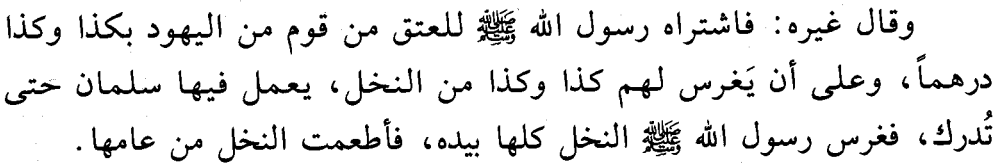 وقال غيره: فاشتراه رسول الله ﷺ للعتق من قوم من اليهود بكذا وكذا
درهماً، وعلى أن يَغرس لهم كذا وكذا من النخل، يعمل فيها سلمان حتى
تُدرك، فغرس رسول الله ﷺ النخل كلها بيده، فأطعمت النخل من عامها.